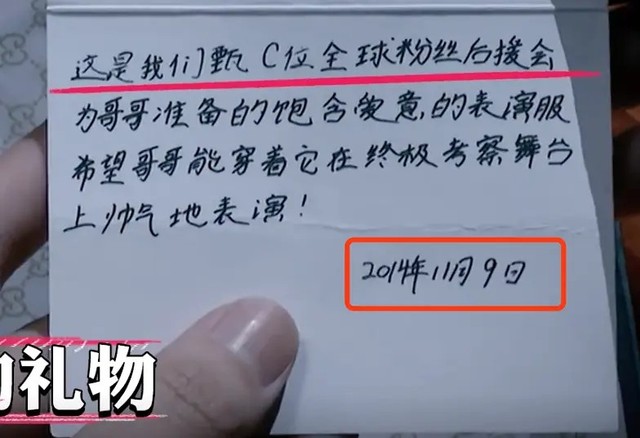 这是我们甄C位全球粉丝后援会
为哥哥准备的饱含爱意的表演服
希望哥哥能穿着它在终极考察舞台
上帅气地表演！
2014年11月9日
的礼物